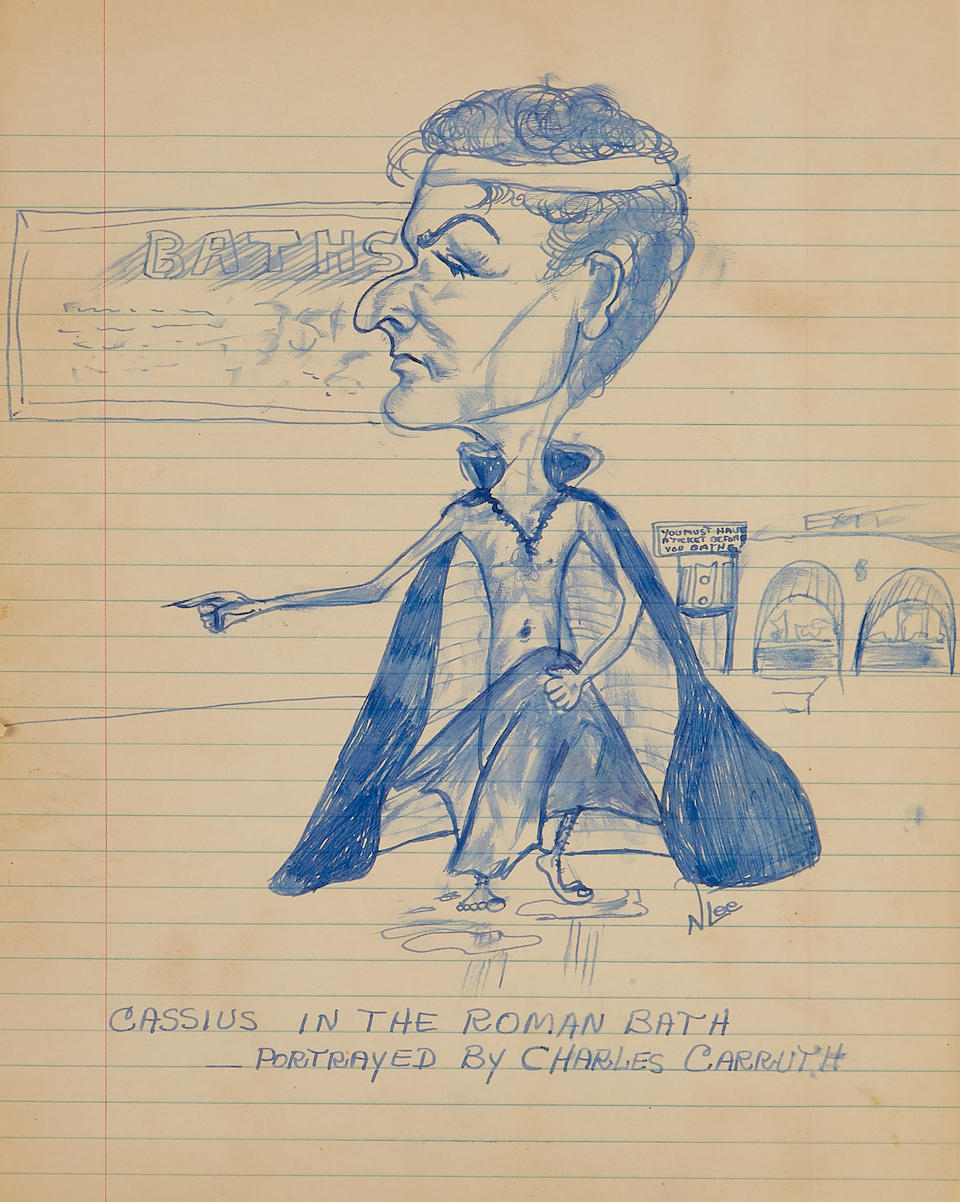 BATHS
EXIT
YOU MUST HAVE
A TICKET BEFORE
YOU BATHE
$
N Lee
CASSIUS IN THE ROMAN BATH
— PORTRAYED BY CHARLES CARRUTH